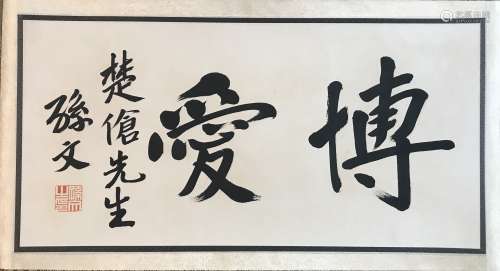 博愛
楚傖先生
孫文